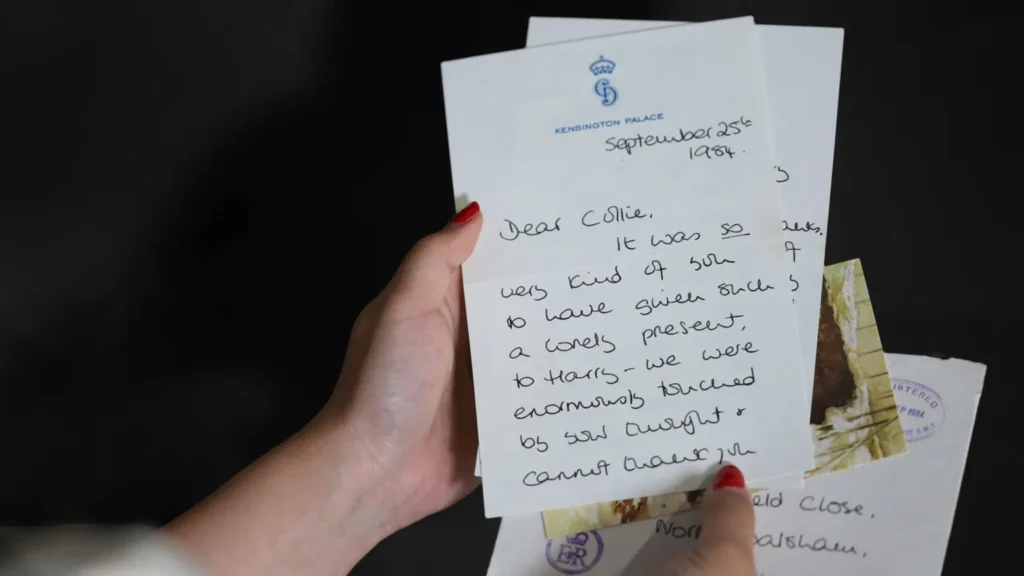 CD
KENSINGTON PALACE
September 25th
1984.
Dear Collie,
It was so
very kind of you
to have given such
a lovely present,
to Harry - we were
enormously touched
by your thought &
cannot thank you
ISTERED
EP 1984
ER
eld Close,
Nor alsham,